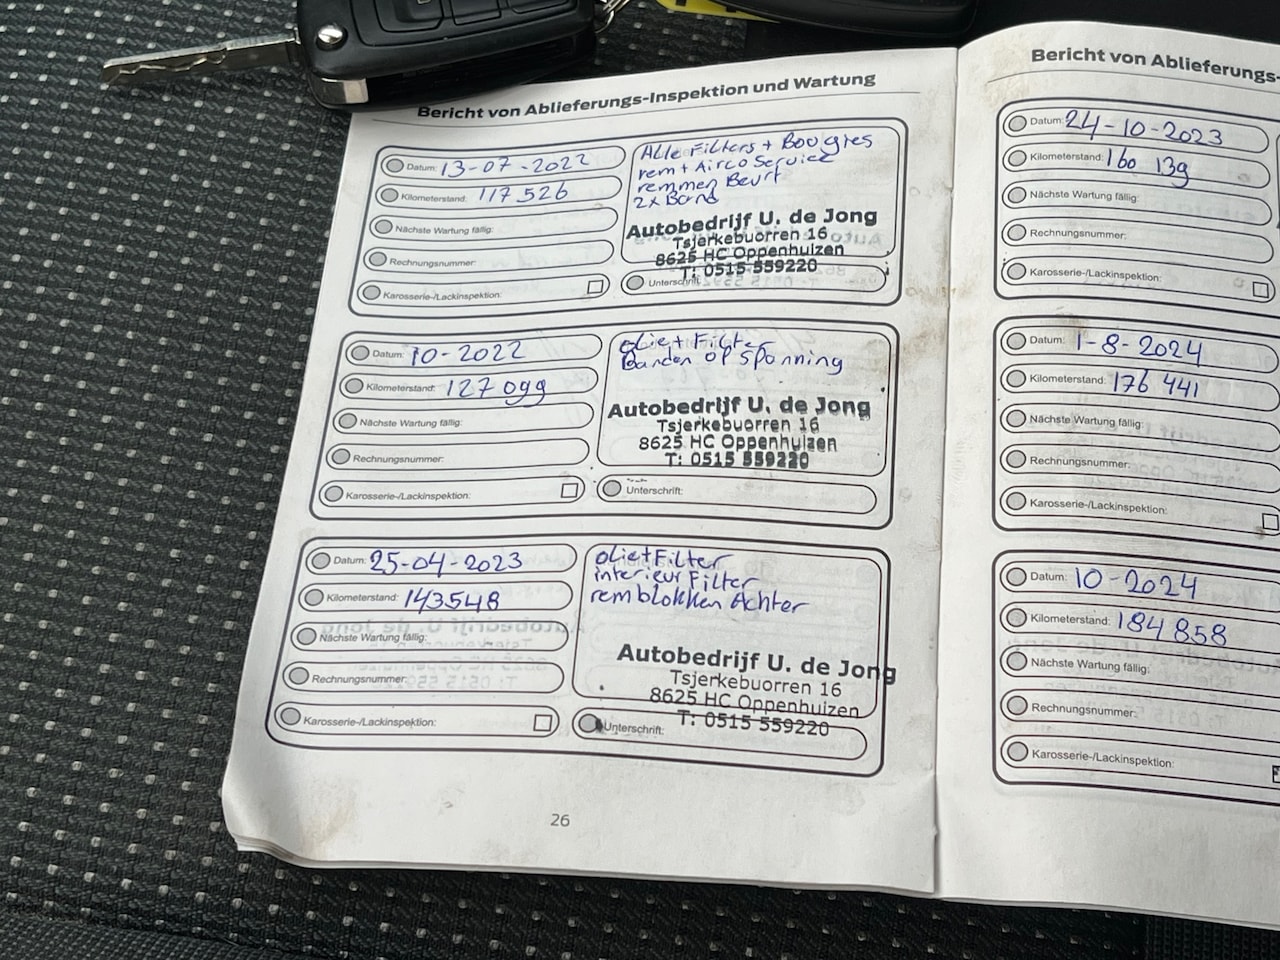 Bericht von Ablieferungs-Inspektion und Wartung
Datum: 13-07-2022
Kilometerstand: 117 526
Nächste Wartung fällig:
Rechnungsnummer:
Karosserie-/Lackinspektion:
Alle Filters + Bougies
rem + Airco Service
remmen Beurt
2x Band
Autobedrijf U. de Jong
Tsjerkebuorren 16
8625 HC Oppenhuizen
T: 0515 559220
Unterschrift:
Datum: 10-2022
Kilometerstand: 127 099
Nächste Wartung fällig:
Rechnungsnummer:
Karosserie-/Lackinspektion:
olie + Filter
Banden op spanning
Autobedrijf U. de Jong
Tsjerkebuorren 16
8625 HC Oppenhuizen
T: 0515 559220
Unterschrift:
Datum: 25-04-2023
Kilometerstand: 143548
Nächste Wartung fällig:
Rechnungsnummer:
Karosserie-/Lackinspektion:
olie + Filter
interieur Filter
remblokken Achter
Autobedrijf U. de Jong
Tsjerkebuorren 16
8625 HC Oppenhuizen
T: 0515 559220
Unterschrift:
26
Bericht von Ablieferungs-
Datum: 24-10-2023
Kilometerstand: 160 139
Nächste Wartung fällig:
Rechnungsnummer:
Karosserie-/Lackinspektion:
Datum: 1-8-2024
Kilometerstand: 176 441
Nächste Wartung fällig:
Rechnungsnummer:
Karosserie-/Lackinspektion:
Datum: 10-2024
Kilometerstand: 184 858
Nächste Wartung fällig:
Rechnungsnummer:
Karosserie-/Lackinspektion: